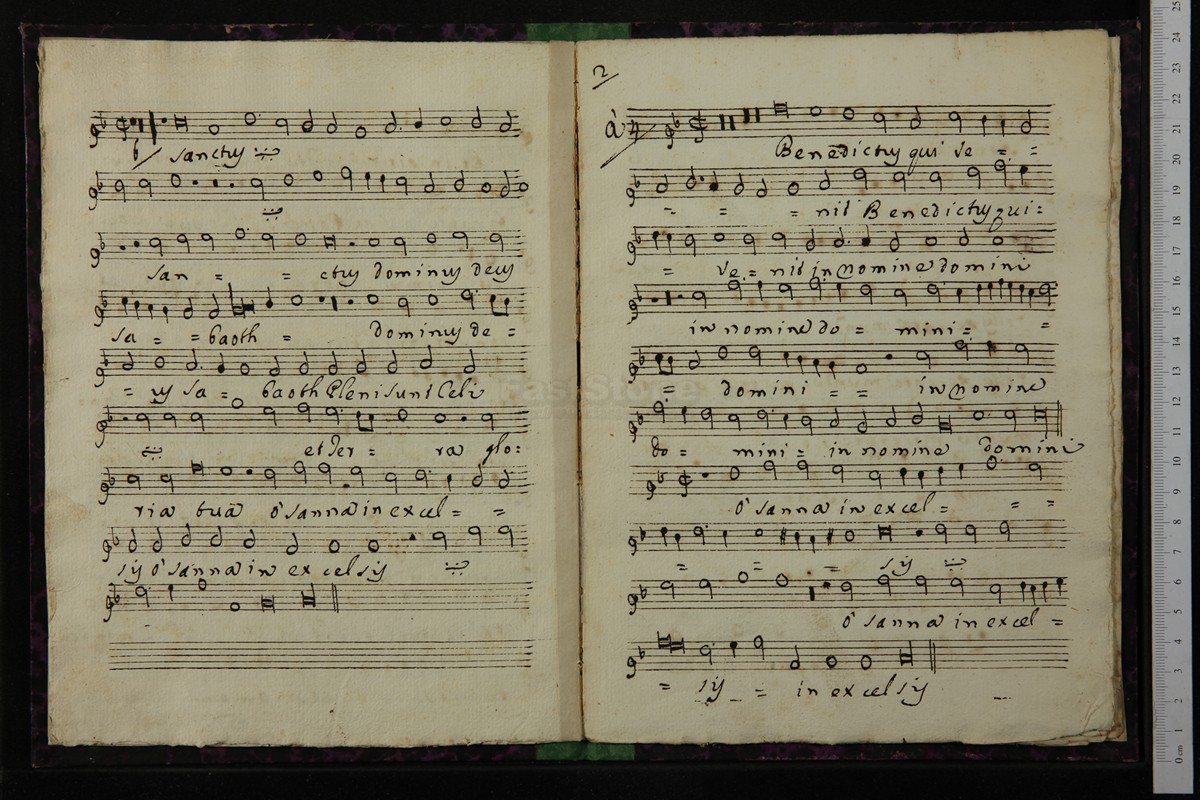 6 Sanctus
San = = ctus dominus deus
Sa = = baoth = dominus de =
= us Sa = baoth Pleni Sunt Celi
et ter = ra glo:
ria tuã o'Sanna in excel = =
sis o'Sanna in excelsis
2
à 4
Benedictus qui ve = =
= = = nit Benedictus qui:
= ve = nit in nomine domini
in nomine do = mini = =
= domini = = in nomine
do = mini = in nomine domini
o'Sanna in excel = = =
= = = sis
o'Sanna in excel =
= sis = in excelsis
FastStore
0 cm 1 2 3 4 5 6 7 8 9 10 11 12 13 14 15 16 17 18 19 20 21 22 23 24 25